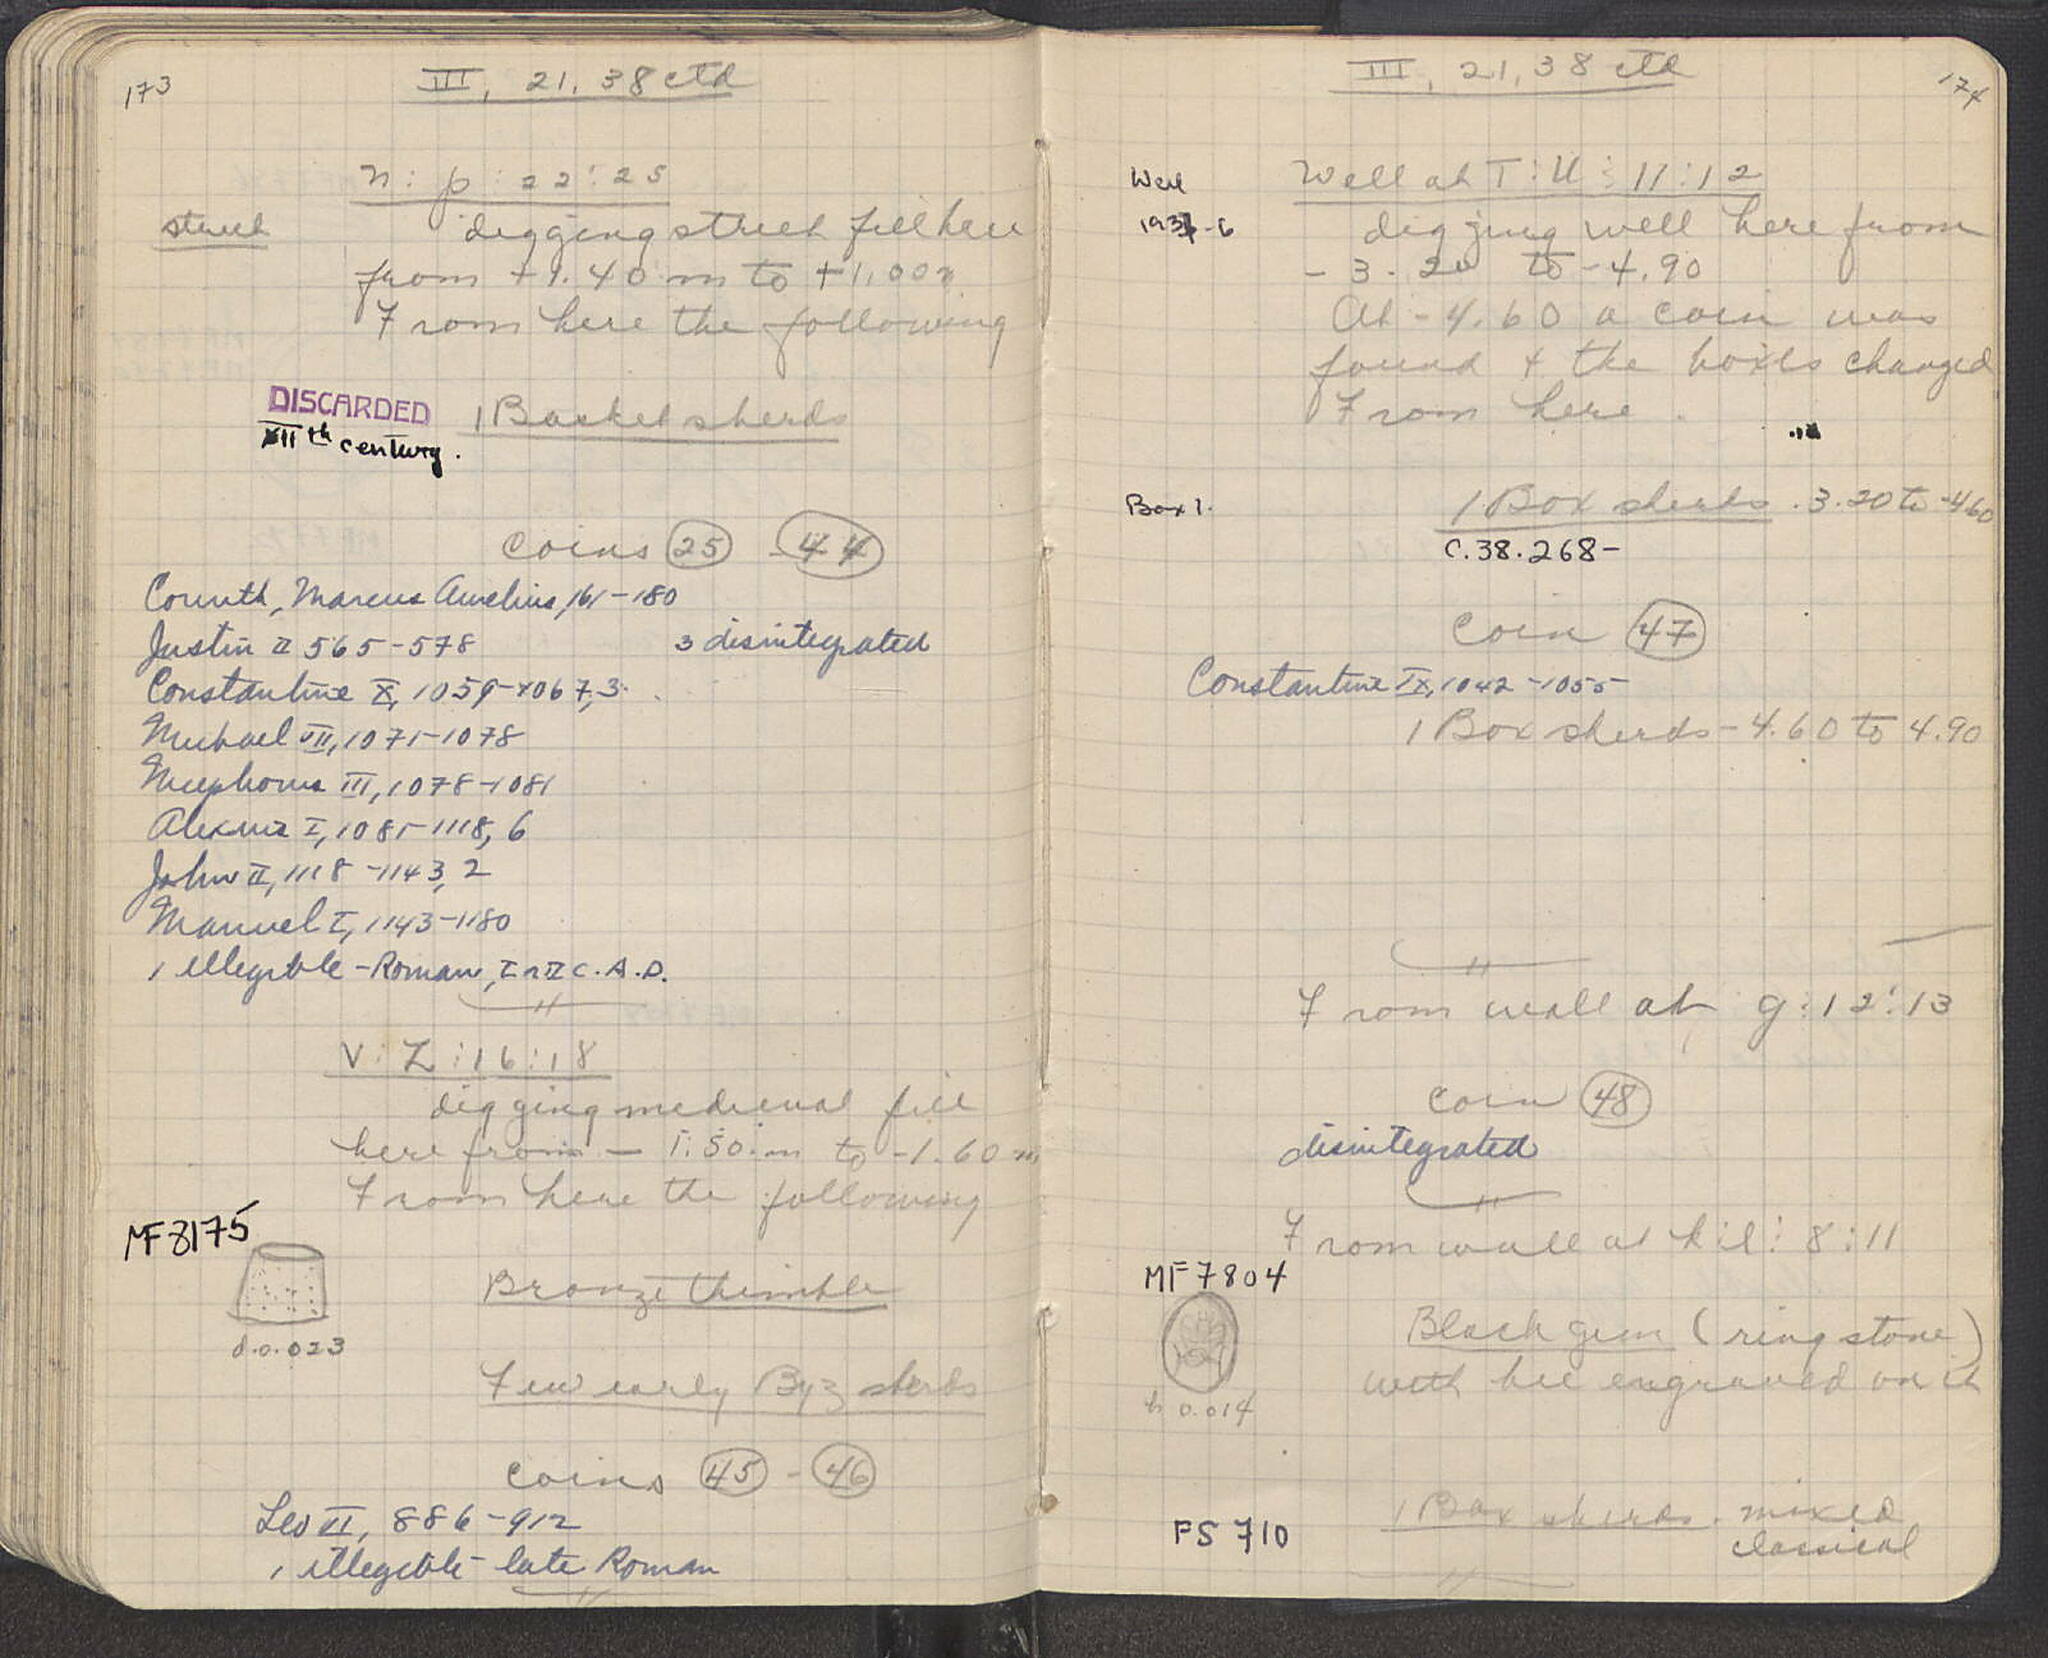 173
III, 21, 38 ctd
n : p : 22 : 25
street
digging street fill here
from +1.40 m to +1.00m
From here the following
DISCARDED
XIIth century.
1 Basket sherds
Coins 25 - 44
Corinth, Marcus Aurelius, 161-180
Justin II 565-578
3 disintegrated
Constantine X, 1059-1067, 3.
Michael VII, 1071-1078
Nicephorus III, 1078-1081
Alexius I, 1081-1118, 6
John II, 1118-1143, 2
Manuel I, 1143-1180
1 illegible - Roman, I or II C. A.D.
V : Z : 16 : 18
digging medieval fill
here from - 1.50 m to -1.60 m
From here the following
MF 8175
Bronze thimble
d.0.023
Few early Byz sherds
coins 45 - 46
Leo VI, 886-912
1 illegible - late Roman
174
III, 21, 38 ctd
Well
Well at T : U : 11 : 12
digging well here from
-6
- 3.20 to - 4.90
At - 4.60 a coin was
found + the boxes changed
From here.
Box 1.
1 Box sherds . 3.20 to -4.60
C.38.268-
Coin 47
Constantine IX, 1042-1055
1 Box sherds - 4.60 to 4.90
From wall at g : 12 : 13
Coin 48
disintegrated
From wall at k : l : 8 : 11
MF 7804
Black gem (ring stone)
with bee engraved on it
h 0.014
FS 710
1 Box sherds. mixed
classical